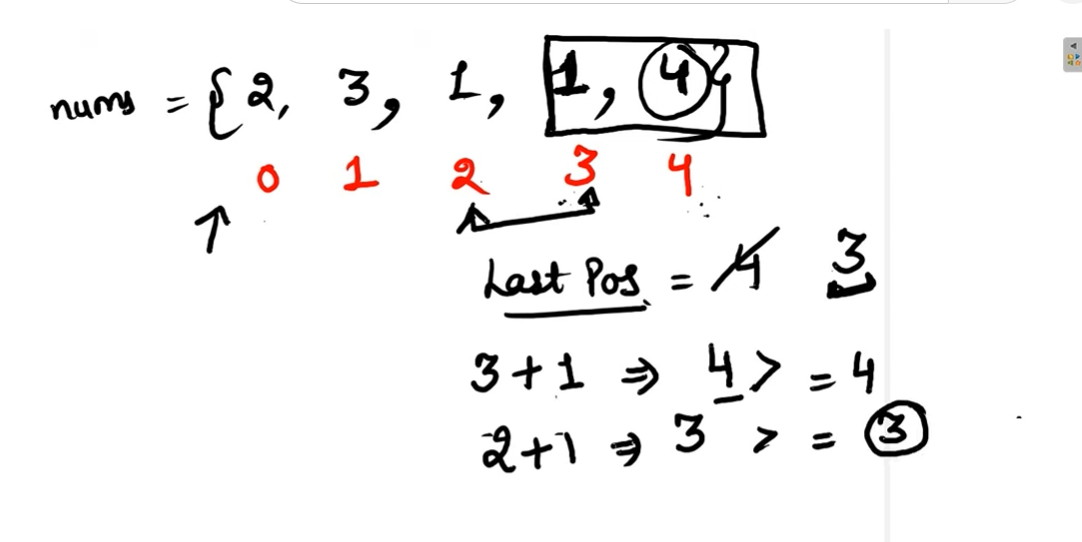 nums = {2, 3, 1, 1, 4}
0 1 2 3 4
Last Pos = 4 3
3 + 1 ⇒ 4 > = 4
2 + 1 ⇒ 3 > = 3